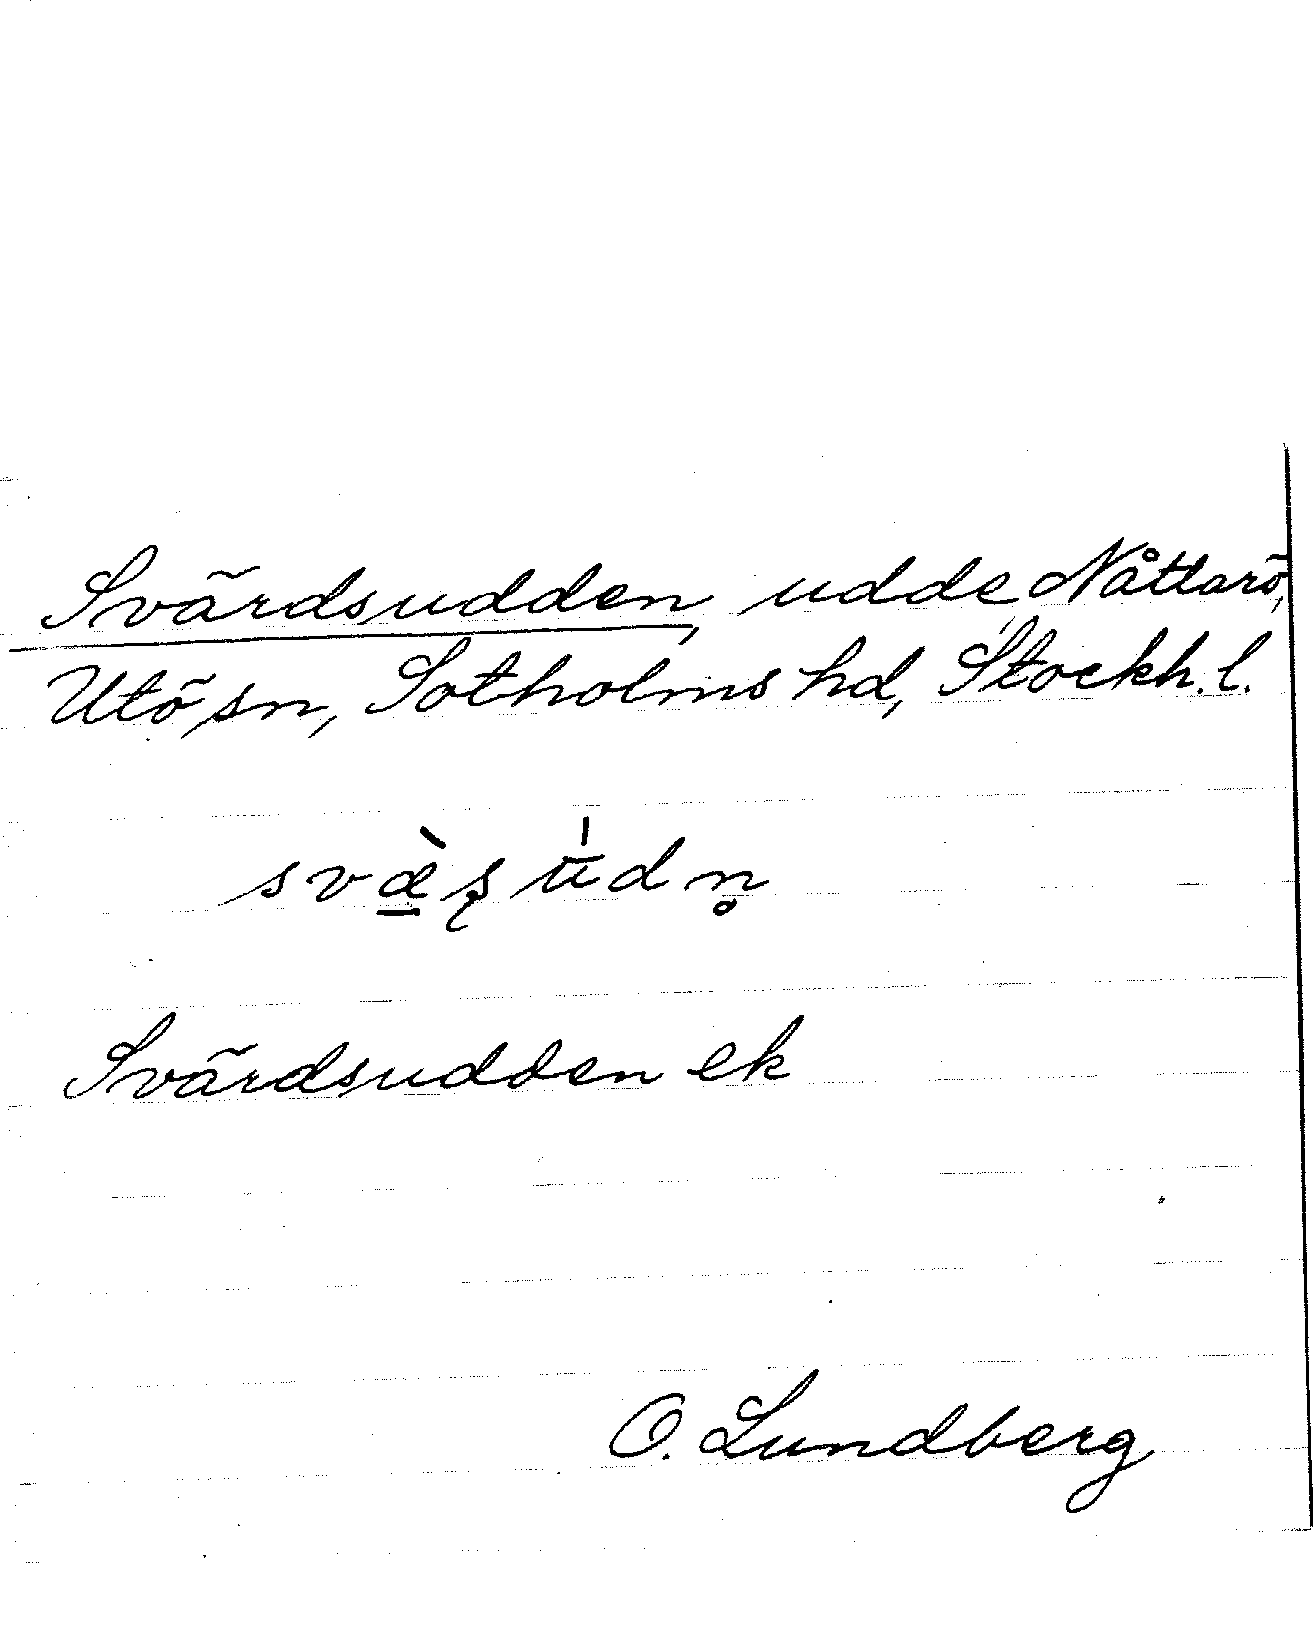 Svärdsudden, udde, Nåttarö,
Utö sn, Sotholms hd, Stockh. l.
svæ̱̀ʂ ū́dn̥
Svärdsudden ek
O. Lundberg